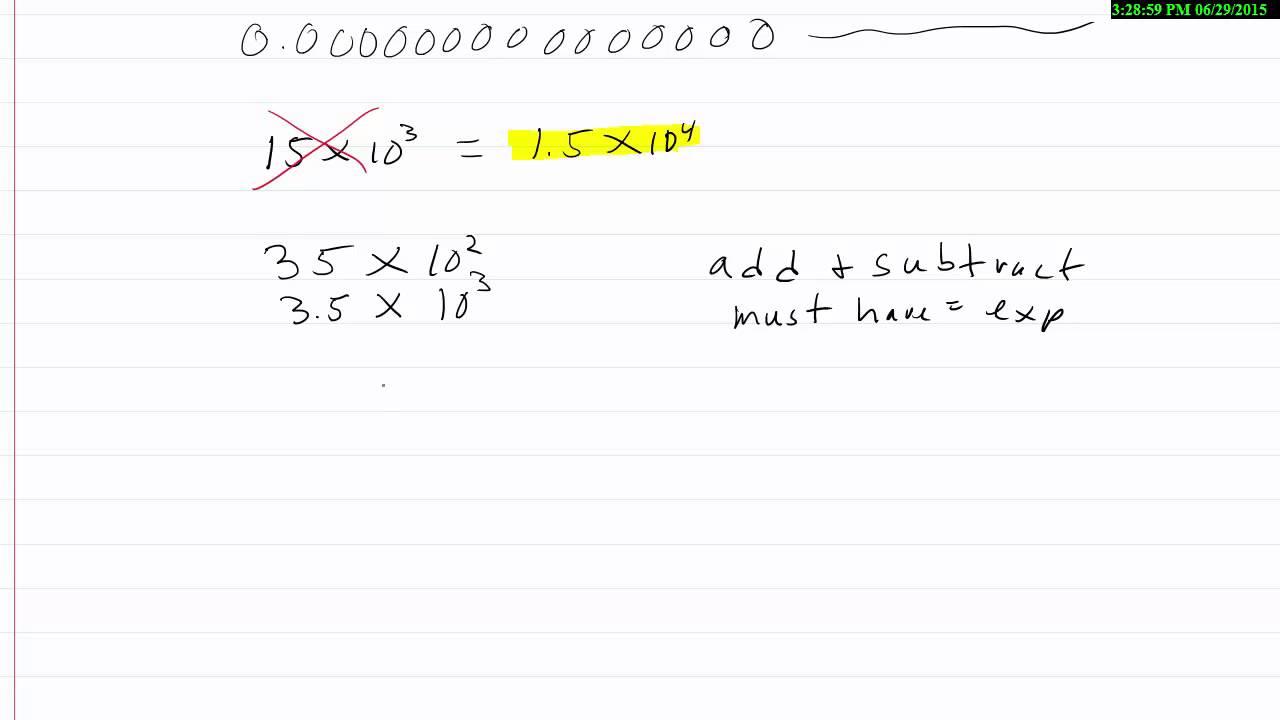 3:28:59 PM 06/29/2015
0.00000000000000
15 × 10³ = 1.5 × 10⁴
35 × 10²
3.5 × 10³
add + subtract
must have = exp